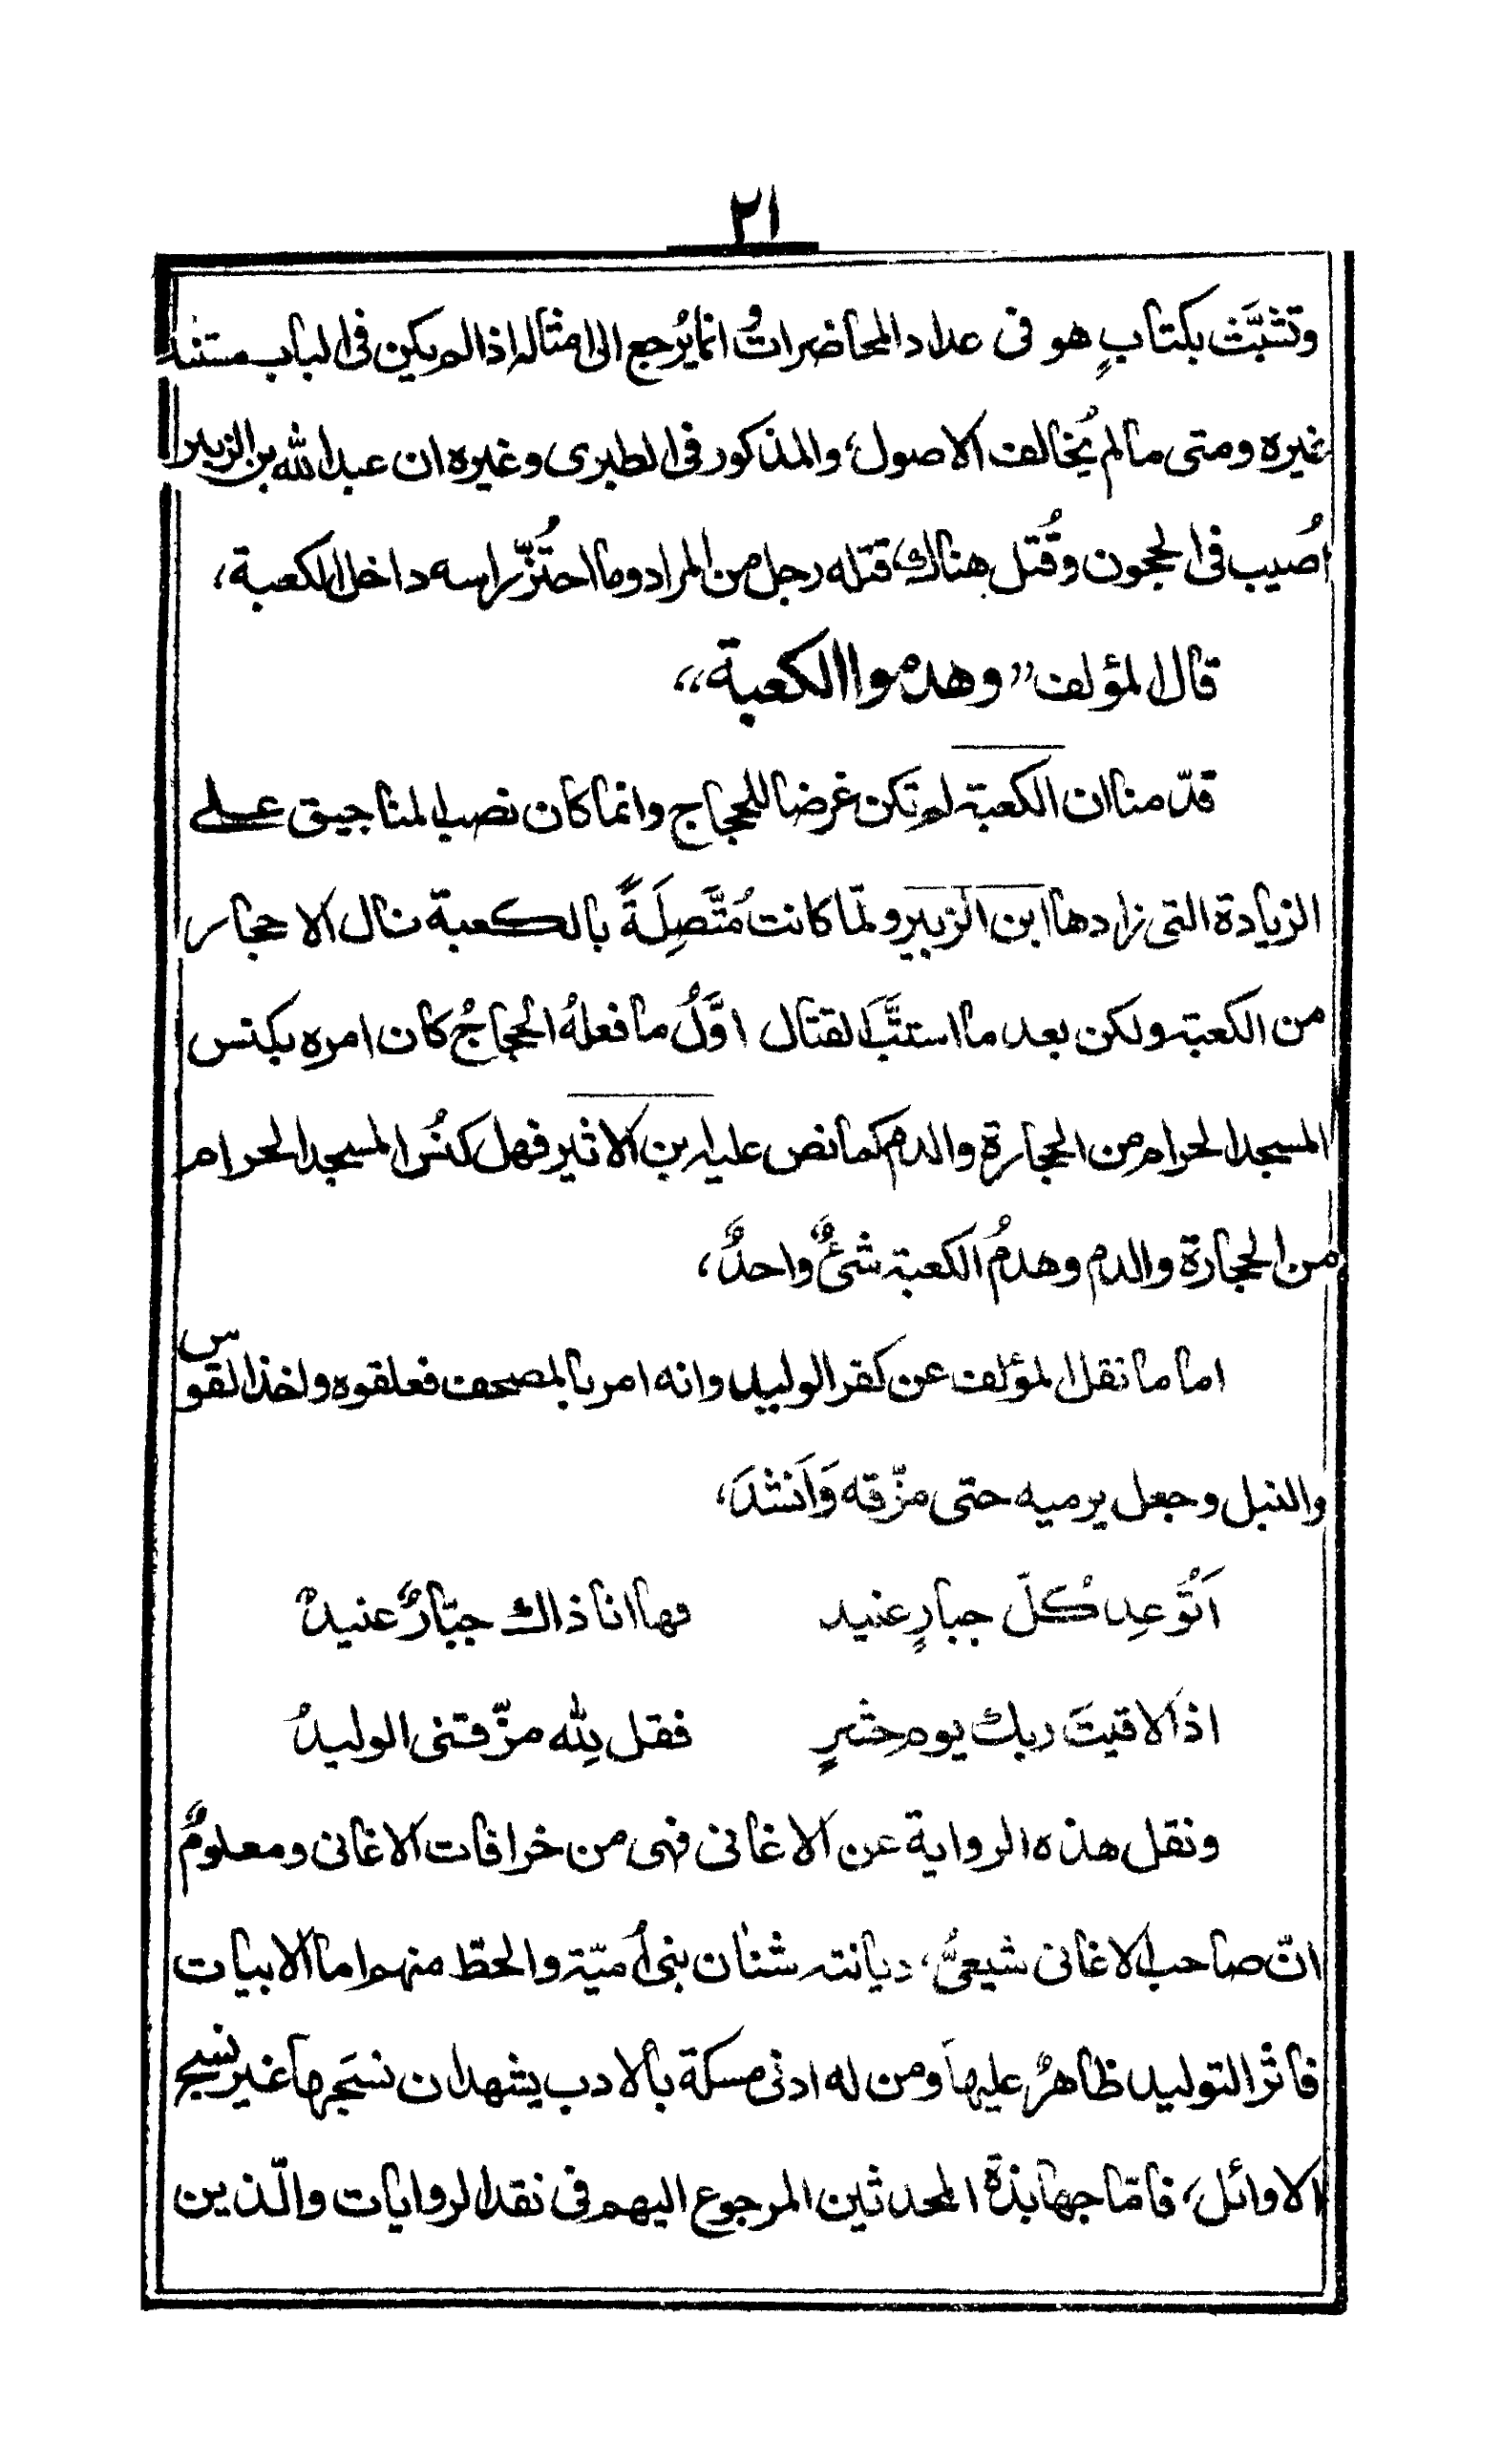 ٢١
وتشبَّث بكتابٍ هو فى عداد المحاضراتُ وانما يُرجع الى امثاله اذا لم يكن فى الباب مستند
غيره ومتى مالم يُخالف الاصول، والمذكور فى الطبرى وغيره ان عبدالله بن الزبير
اُصيب فى الحجون وقُتل هناك قتله رجل من المراد وما احتُزّ راسه داخل الكعبة،
قال المؤلف ”وهدموا الكعبة“
قدّمنا ان الكعبة لم تكن غرضا للحجاج وانما كان نصب المناجيق على
الزيادة التى زادها ابن الزبير ولمّا كانت مُتَّصِلَةً بالكعبة نال الاحجار
من الكعبة ولكن بعد ما استتَّب القتال اوَّلُ ما فعلهُ الحجاجُ كان امره بكنس
المسجد الحرام من الحجارة والدم كما نص عليه بن الاثير فهل كنسُ المسجد الحرام
من الحجارة والدم وهدمُ الكعبة شئٌ واحدٌ،
اما ما نقل المؤلف عن كفر الوليد وانه امر بالمصحف فعلقوه واخذ القوس
والنبل وجعل يرميه حتى مزّقه وَاَنشدَ،
اَتُوَعِد كُلّ جبارٍ عنيد فها انا ذاك جبّارٌ عنيدٌ
اذا لاقيتَ ربك يوم حشرٍ فقل لِلّه مزّقنى الوليدُ
ونقل هذه الرواية عن الاغانى فهى من خرافات الاغانى ومعلومٌ
انّ صاحب الاغانى شيعىٌّ، ديانته شنٰان بنى اُميّة والحظّ منهم اما الابيات
فاثر التوليد ظاهرٌ عليها ومن له ادنى مسكة بالادب يشهد ان نسَجها غير نسج
الاوائل، فامّا جهابذة المحدثين المرجوع اليهم فى نقد الروايات والّذين